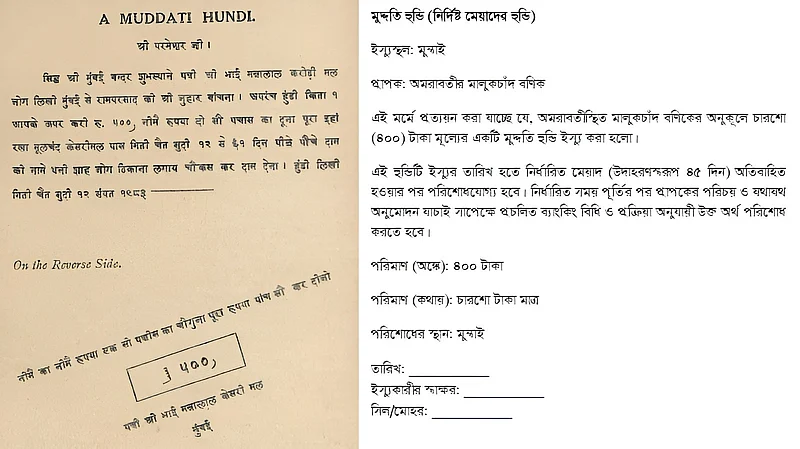 A MUDDATI HUNDI.
श्री परमेश्वर जी।
सिद्ध श्री मुंबई बन्दर शुभस्थाने पत्नी श्री भाई मन्नालाल करोड़ी मल
जोग लिखी मुंबई से रामपरसाद की श्री जुहार बांचना। अपरंच हुंडी किता १
आपके ऊपर करी रु. ५००, नीमे रुपया दो सौ पचास का दूना पूरा इहां
रखा मूलचंद केसरीमल पास मिती चैत सुदी १२ से ६१ दिन पीछे पीछे दाम
को नामे धनी शाह जोग ठिकाना लगाय चौकस कर दाम देना। हुंडी लिखी
मिती चैत सुदी १२ संवत १९८३
On the Reverse Side.
नीमे का नीमे रुपया एक सौ पच्चीस का चौगुना पूरा रुपया पांच सौ कर दीजो
५००,
पत्नी श्री भाई मन्नालाल केसरी मल
मुंबई
মুদ্দতি হুন্ডি (নির্দিষ্ট মেয়াদের হুন্ডি)
ইস্যুস্থল: মুম্বাই
প্রাপক: অমরাবতীর মালুকচাঁদ বণিক
এই মর্মে প্রত্যয়ন করা যাচ্ছে যে, অমরাবতীস্থিত মালুকচাঁদ বণিকের অনুকূলে চারশো
(৪০০) টাকা মূল্যের একটি মুদ্দতি হুন্ডি ইস্যু করা হলো।
এই হুন্ডিটি ইস্যুর তারিখ হতে নির্ধারিত মেয়াদ (উদাহরণস্বরূপ ৪৫ দিন) অতিবাহিত
হওয়ার পর পরিশোধযোগ্য হবে। নির্ধারিত সময় পূর্তির পর প্রাপকের পরিচয় ও যথাযথ
অনুমোদন যাচাই সাপেক্ষে প্রচলিত ব্যাংকিং বিধি ও প্রক্রিয়া অনুযায়ী উক্ত অর্থ পরিশোধ
করতে হবে।
পরিমাণ (অঙ্কে): ৪০০ টাকা
পরিমাণ (কথায়): চারশো টাকা মাত্র
পরিশোধের স্থান: মুম্বাই
তারিখ: ____________
ইস্যুকারীর স্বাক্ষর: ____________
সিল/মোহর: ____________